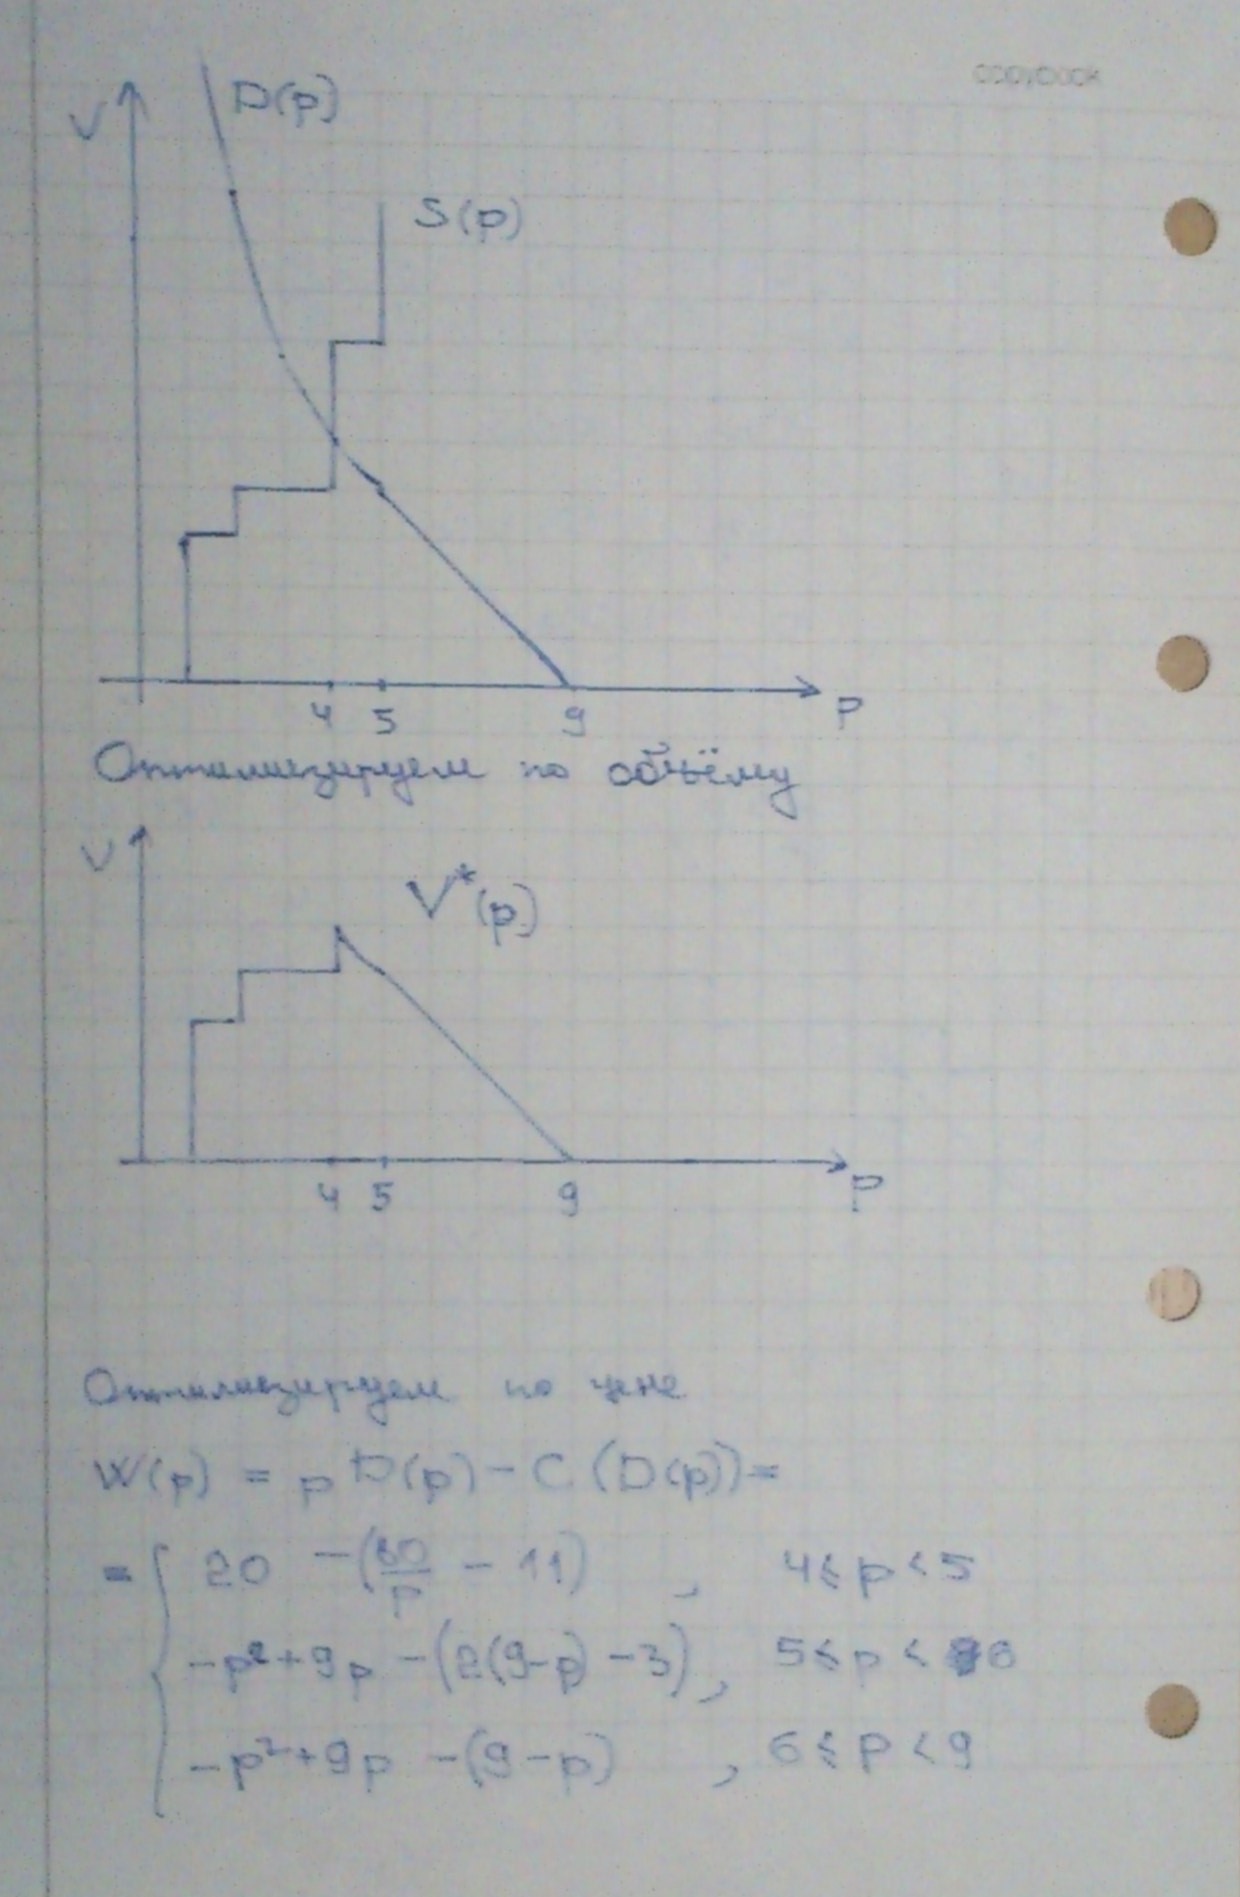 copybook
V
D(p)
S(p)
4 5 9 P
Оптимизируем по объёму
V
V*(p)
4 5 9 P
Оптимизируем по цене
W(p) = p D(p) - C (D(p)) =
= { 20 - (80/p - 11) , 4 ≤ p < 5
-p² + 9p - (2(9-p) - 3) , 5 ≤ p < 6
-p² + 9p - (9-p) , 6 ≤ p < 9